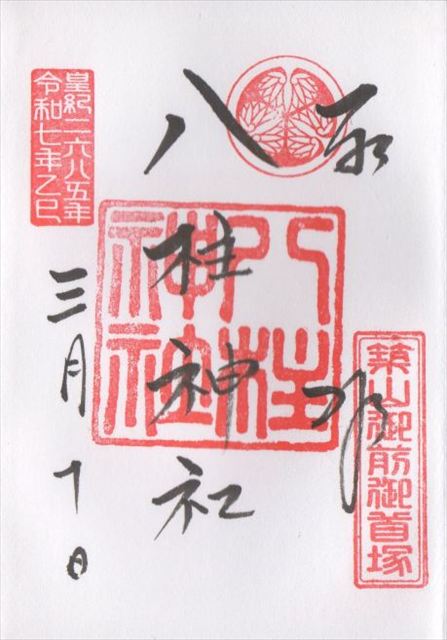 奉拝
築山御前御首塚
八柱神社
八柱
神社
皇紀二六八五年
令和七年乙巳
三月十日